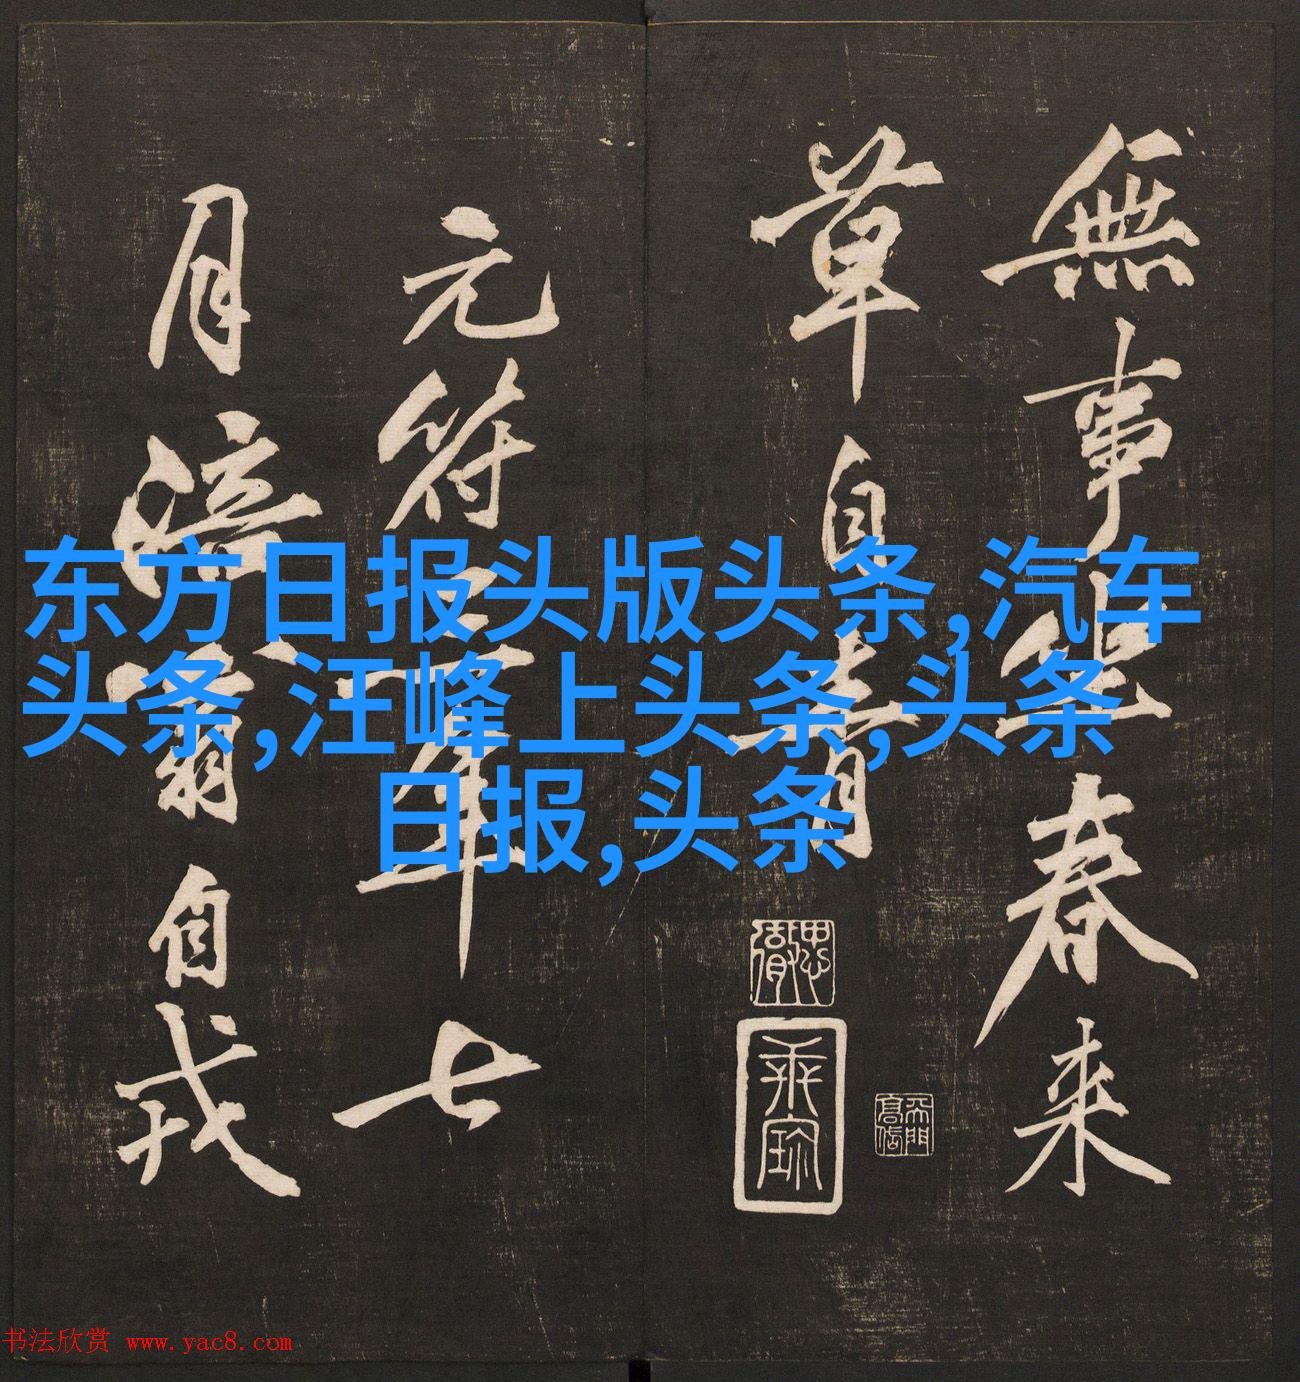 無事坐春来
草自青
元符三年七
月涪翁自戎
东方日报头版头条,汽车
头条,汪峰上头条,头条
日报,头条
书法欣赏 www.yac8.com